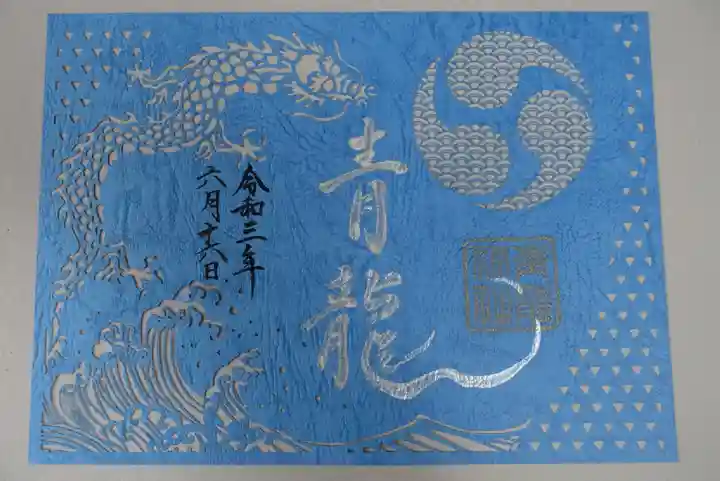 青龍
令和三年
六月十六日